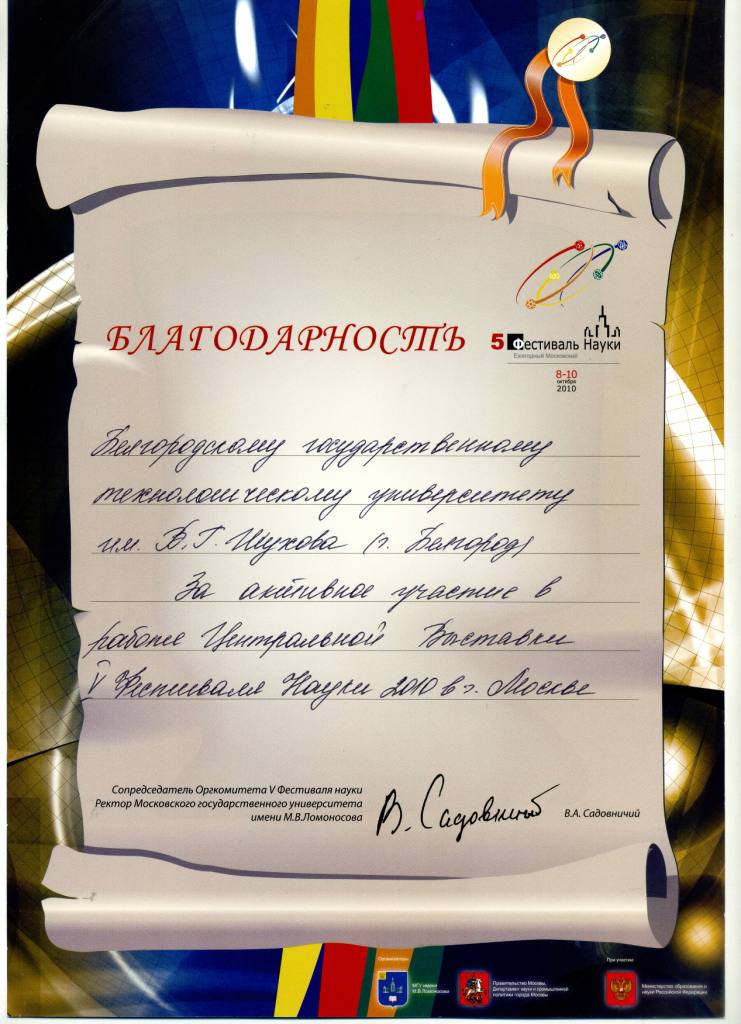 БЛАГОДАРНОСТЬ
5 Фестиваль Науки
Ежегодный Московский
8-10
октября
2010
Белгородскому государственному
технологическому университету
им. В.Г. Шухова (г. Белгород)
За активное участие в
работе Центральной Выставки
V Фестиваля Науки 2010 в г. Москве
Сопредседатель Оргкомитета V Фестиваля науки
Ректор Московского государственного университета
имени М.В.Ломоносова
В. Садовничий
В.А. Садовничий
Организаторы
При участии
МГУ имени
М.В.Ломоносова
Правительство Москвы,
Департамент науки и промышленной
политики города Москвы
Министерство образования и
науки Российской Федерации